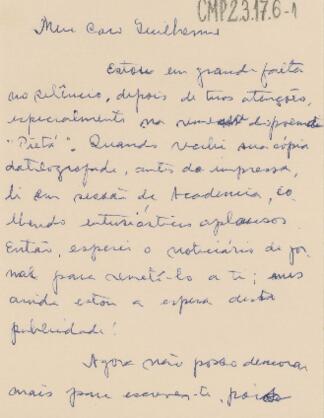 CMP2.3.17.6-1
Meu caro Guilherme
Estou em grande falta
no silêncio, depois de tuas atenções,
especialmente na remessa do poema
"Pietá". Quando recebi sua cópia
datilografada, antes da impressa,
li em sessão de Academia, co
lhendo entusiásticos aplausos.
Então, esperei o noticiário de jor
nal para remetê-lo a ti; mas
ainda estou a espera desta
publicidade!
Agora não posso demorar
mais para escrever-ti, pois